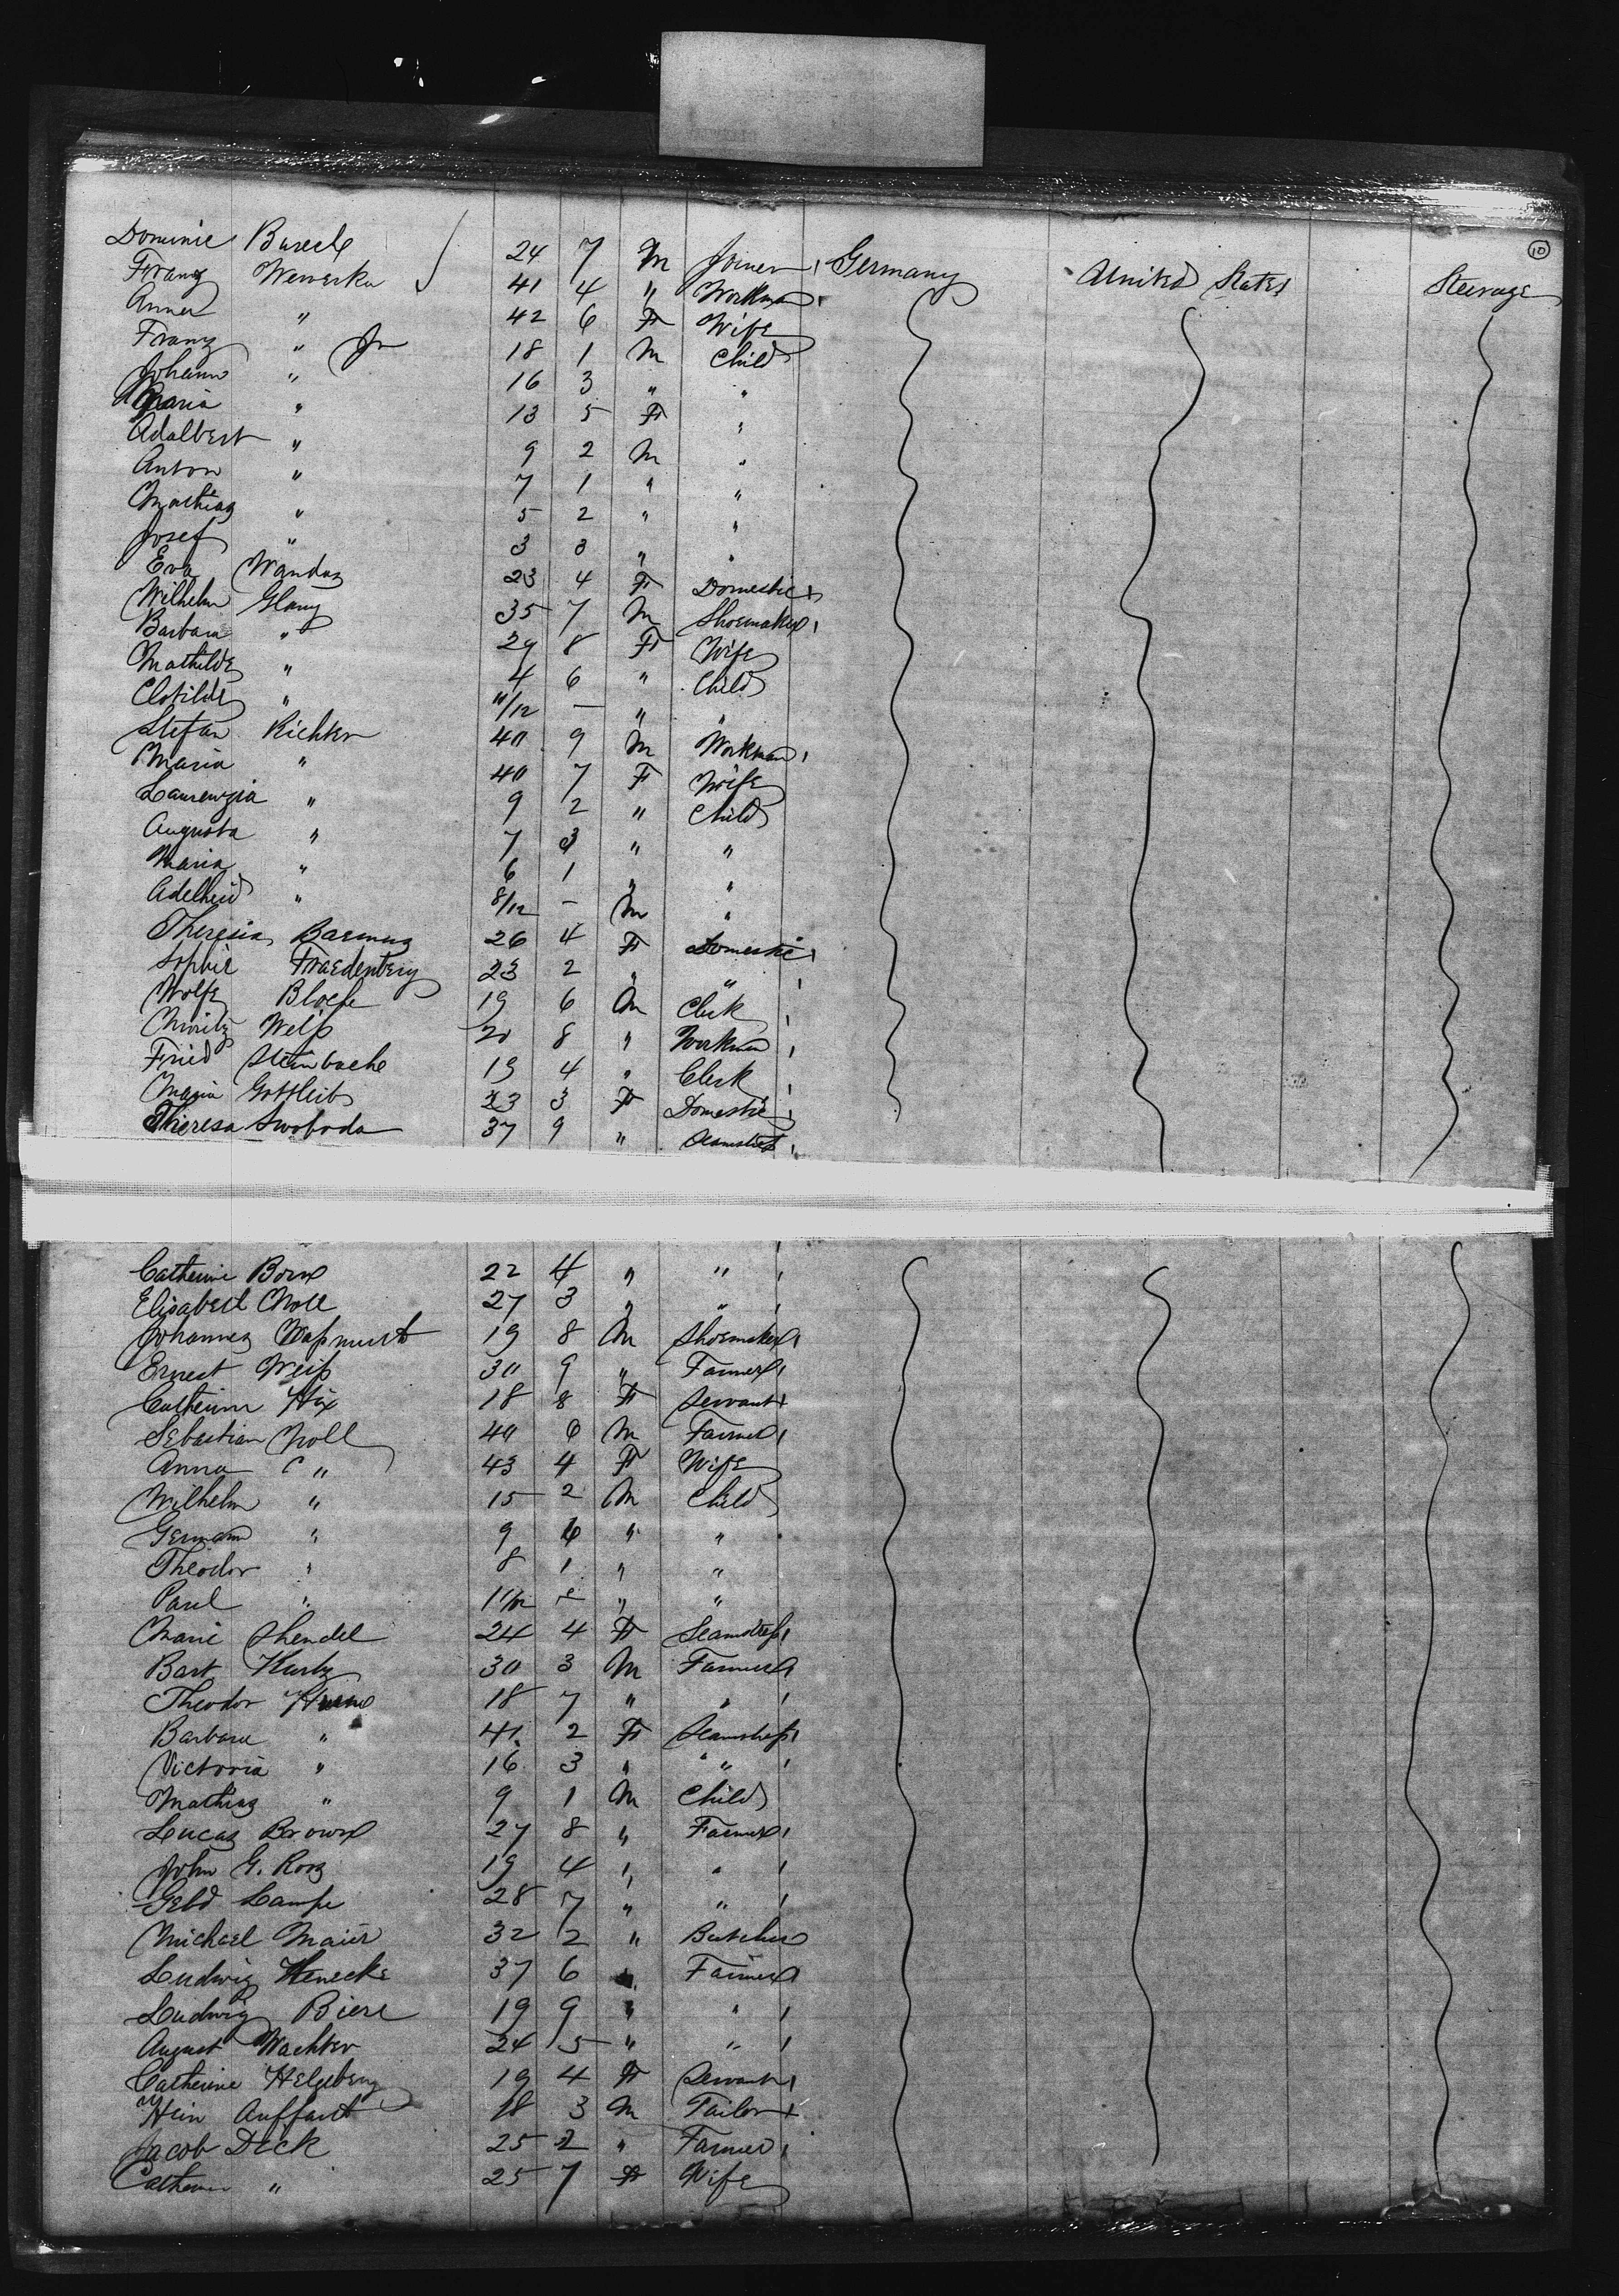 10
Dominic 24 7 M Joiner Germany United States Steerage
Franz Wewerka 41 4 " Workman
Anna " 42 6 F Wife
Franz " Jr 18 1 M Child
Johann " 16 3 " "
Maria " 13 5 F "
Adalbert " 9 2 M "
Anton " 7 1 " "
Mathias " 5 2 " "
Josef " 3 3 " "
Eva 23 4 F Domestic
Wilhelm Glanz 35 7 M Shoemaker
Barbara " 29 8 F Wife
Mathilde " 4 6 " Child
Clotilde " 11/12 – " "
Stefan Richter 40 9 M Workman
Maria " 40 7 F Wife
Laurenzia " 9 2 " Child
Augusta " 7 3 " "
Maria " 6 1 " "
Adelheid " 8/12 – M "
Theresia 26 4 F Domestic
Sophie 23 2 " "
Wolfe 19 6 M Clerk
Moritz 20 8 " Workman
Fried Steinbach 19 4 " Clerk
Maria Gottlieb 23 3 F Domestic
Theresa Swoboda 37 9 " Seamstress
Catherine 22 4 " "
Elisabeth Noll 27 3 " "
Johannes 19 8 M Shoemaker
Ernest Weiss 30 9 " Farmer
Catherine Hix 18 8 F Servant
Sebastian Noll 6 M Farmer
Anna C " 43 4 F Wife
Wilhelm " 15 2 M Child
Germann " 9 6 " "
Theodor " 8 1 " "
Paul " 11/12 – " "
Marie Shendel 24 4 F Seamstress
Bart Kurtz 30 3 M Farmer
Theodor 18 7 " "
Barbara " 41 2 F Seamstress
Victoria " 16 3 " "
Mathias " 9 1 M Child
Lucas Brown 27 8 " Farmer
John G. Roos 19 4 " "
Gebd Lampe 28 7 " "
Michael Maier 32 2 " Butcher
Ludwig Henecke 37 6 " Farmer
Ludwig Biere 19 9 " "
August Wachter 24 5 " "
Catherine Helgeberg 19 4 F Servant
Hein Auffart 18 3 M Tailor
Jacob Deck 25 2 " Farmer
Catherine " 25 7 F Wife